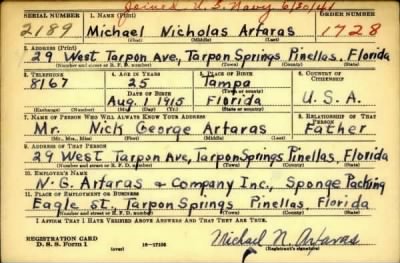 Joined U.S. Navy 6/30/41
SERIAL NUMBER 1. NAME (Print) ORDER NUMBER
2189 Michael Nicholas Arfaras 1728
(First) (Middle) (Last)
2. ADDRESS (Print)
29 West Tarpon Ave, Tarpon Springs Pinellas, Florida
(Number and street or R. F. D. number) (Town) (County) (State)
3. TELEPHONE 4. AGE IN YEARS 5. PLACE OF BIRTH 6. COUNTRY OF CITIZENSHIP
8167 25 Tampa
DATE OF BIRTH (Town or county)
Aug. 1 1915 Florida U. S. A.
(Mo.) (Day) (Yr.) (State or country)
7. NAME OF PERSON WHO WILL ALWAYS KNOW YOUR ADDRESS 8. RELATIONSHIP OF THAT PERSON
Mr. Nick George Arfaras Father
(Mr., Mrs., Miss) (First) (Middle) (Last)
9. ADDRESS OF THAT PERSON
29 West Tarpon Ave, Tarpon Springs Pinellas, Florida
(Number and street or R. F. D. number) (Town) (County) (State)
10. EMPLOYER'S NAME
N. G. Arfaras & Company Inc., Sponge Packing
11. PLACE OF EMPLOYMENT OR BUSINESS
Eagle St, Tarpon Springs Pinellas, Florida
(Number and street or R. F. D. number) (Town) (County) (State)
I AFFIRM THAT I HAVE VERIFIED ABOVE ANSWERS AND THAT THEY ARE TRUE.
REGISTRATION CARD
D. S. S. Form 1 (over) 16—17105 Michael N. Arfaras
(Registrant's signature)